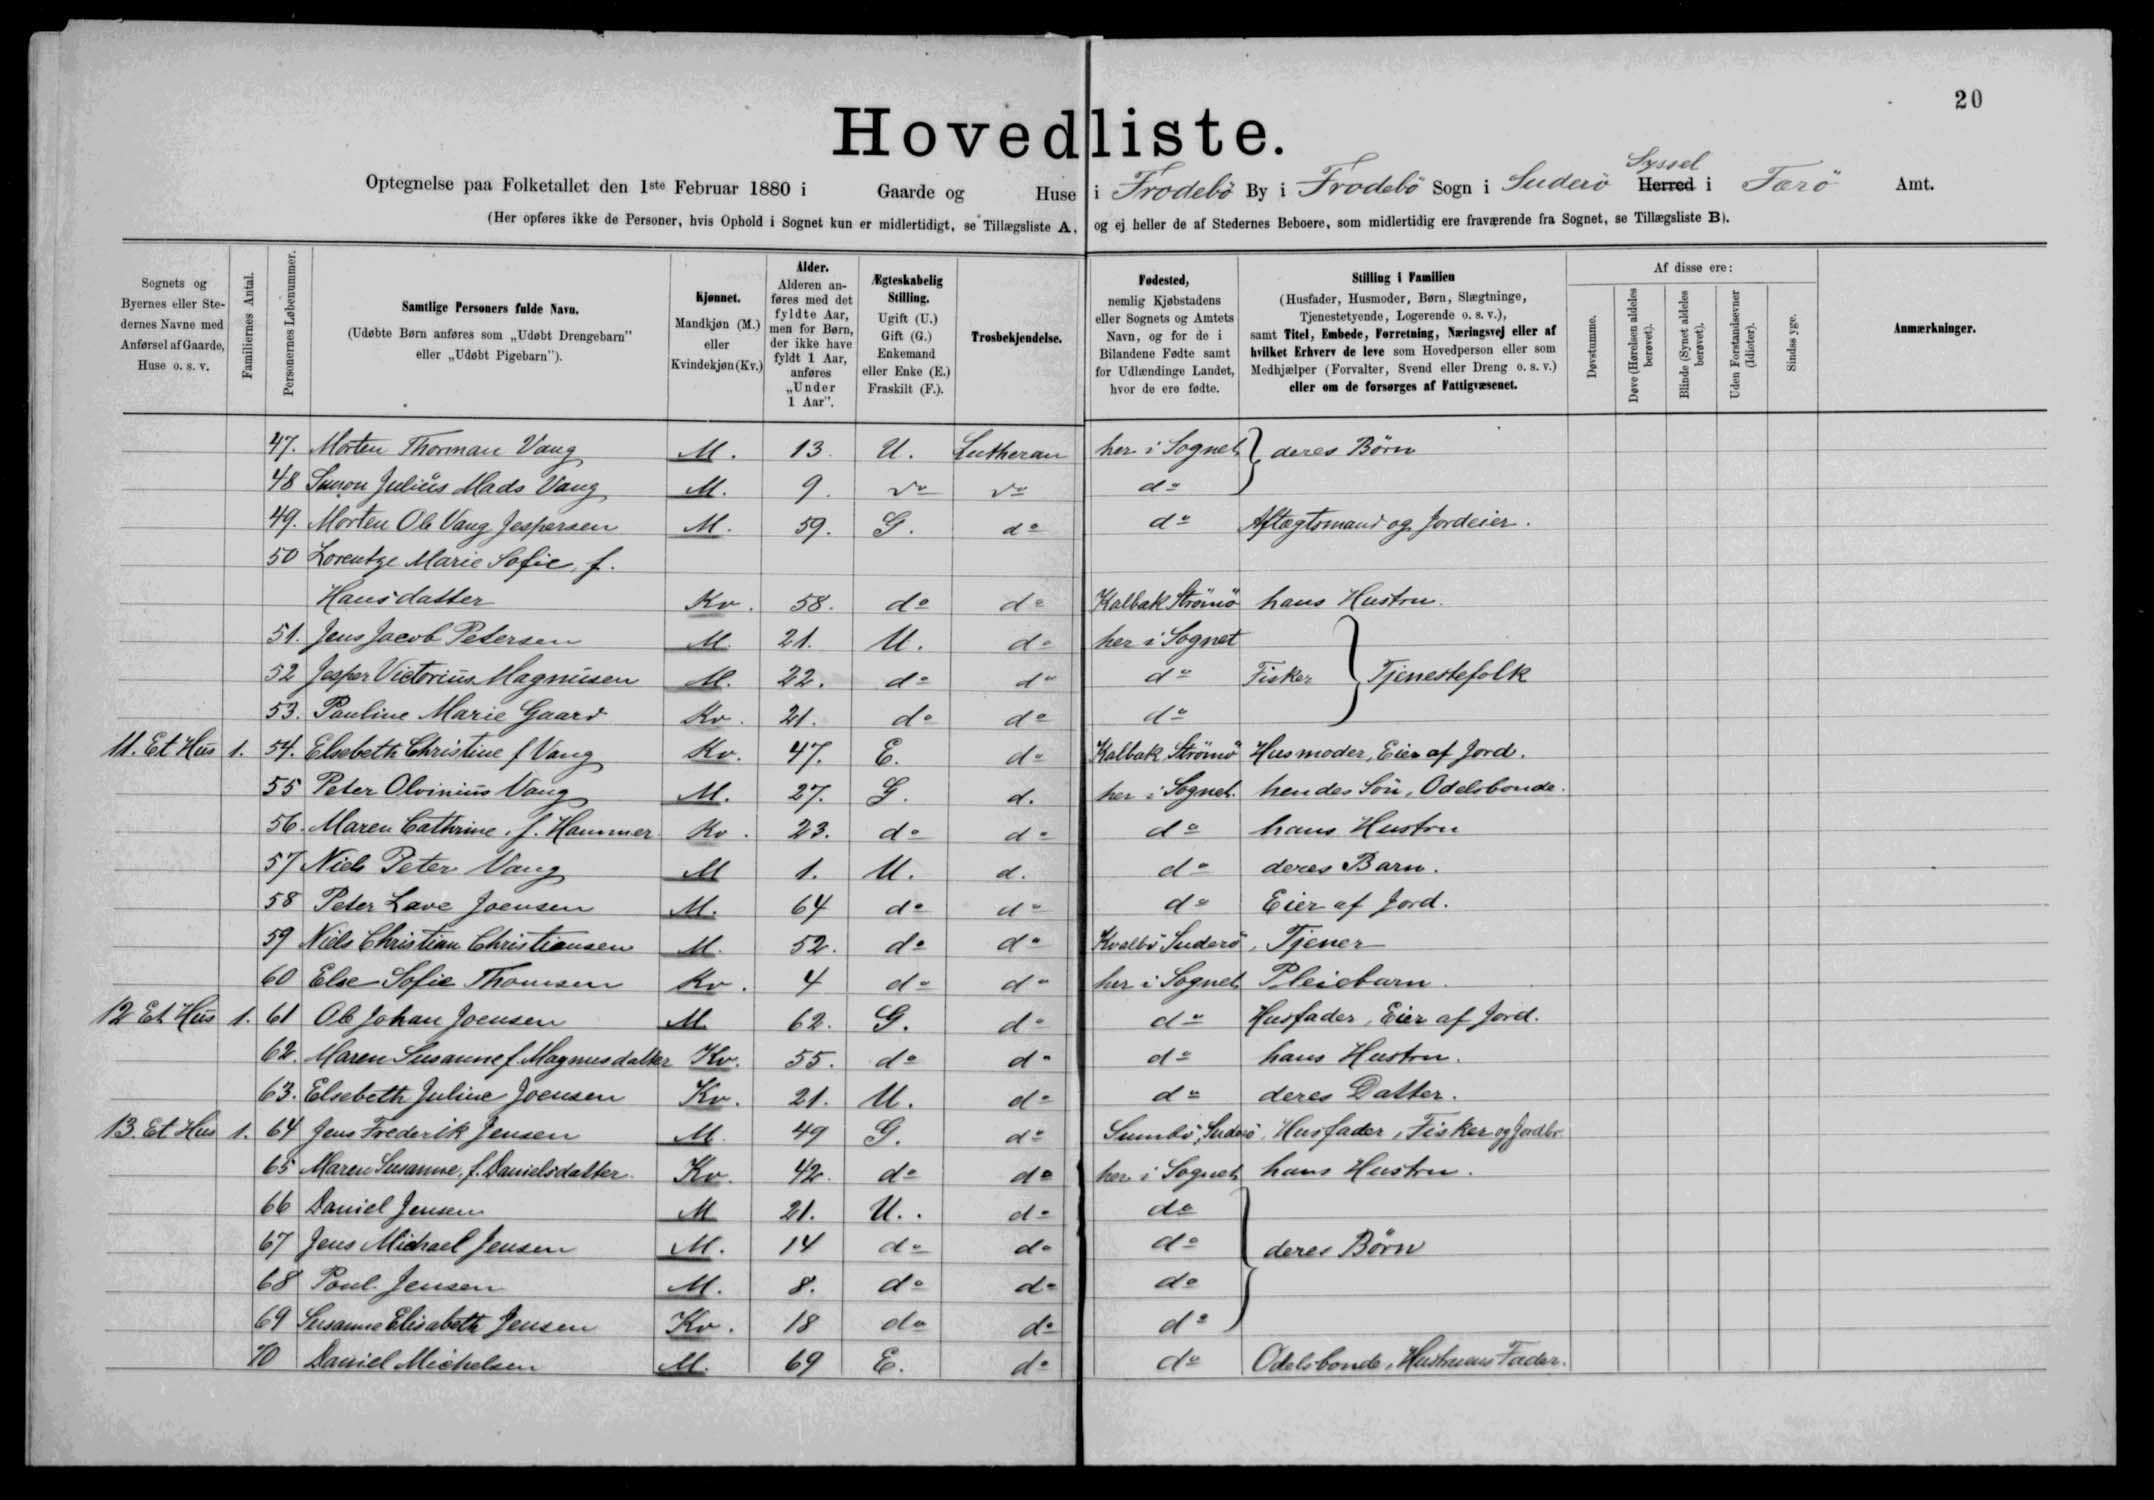 20
Hovedliste.
Optegnelse paa Folketallet den 1ste Februar 1880 i Gaarde og Huse i Frodebö By i Frodebö Sogn i Suderö Herred Syssel i Færö Amt.
(Her opføres ikke de Personer, hvis Ophold i Sognet kun er midlertidigt, se Tillægsliste A, og ej heller de af Stedernes Beboere, som midlertidig ere fraværende fra Sognet, se Tillægsliste B).
Sognets og Byernes eller Stedernes Navne med Anførsel af Gaarde, Huse o. s. v.
Familiernes Antal.
Personernes Løbenummer.
Samtlige Personers fulde Navn. (Udøbte Børn anføres som „Udøbt Drengebarn" eller „Udøbt Pigebarn").
Kjønnet. Mandkjøn (M.) eller Kvindekjøn (Kv.)
Alder. Alderen anføres med det fyldte Aar, men for Børn, der ikke have fyldt 1 Aar, anføres „Under 1 Aar".
Ægteskabelig Stilling. Ugift (U.) Gift (G.) Enkemand eller Enke (E.) Fraskilt (F.).
Trosbekjendelse.
Fødested, nemlig Kjøbstadens eller Sognets og Amtets Navn, og for de i Bilandene Fødte samt for Udlændinge Landet, hvor de ere fødte.
Stilling i Familien (Husfader, Husmoder, Børn, Slægtninge, Tjenestetyende, Logerende o. s. v.), samt Titel, Embede, Forretning, Næringsvej eller af hvilket Erhverv de leve som Hovedperson eller som Medhjælper (Forvalter, Svend eller Dreng o. s. v.) eller om de forsørges af Fattigvæsenet.
Af disse ere:
Døvstumme.
Døve (Hørelsen aldeles berøvet).
Blinde (Synet aldeles berøvet).
Uden Forstandsevner (Idioter).
Sindssyge.
Anmærkninger.
47. Morten Thorman Vang M. 13. U. Lutheran her i Sognet deres Börn
48 Simon Julius Mads Vang M. 9. do do do
49. Morten Ole Vang Jespersen M. 59. G. do do Aftægtsmand og Jordeier.
50 Lorentze Marie Sofie, f.
Hansdatter Kv. 58. do do Kalbak Strömö hans Hustru.
51. Jens Jacob Petersen M. 21. U. do her i Sognet
52 Jesper Victorius Magnusen M. 22. do do do Fisker Tjenestefolk
53. Pauline Marie Gaard Kv. 21. do do do
11. Et Hus 1. 54. Elsebeth Christine f Vang Kv. 47. E. do Kalbak Strömö Husmoder, Eier af Jord.
55 Peter Olvinius Vang M. 27. G. d. her i Sognet. hendes Sön, Odelsbonde.
56. Maren Cathrine. f. Hammer Kv. 23. do do do hans Hustru
57 Niels Peter Vang M 1. U. d. do deres Barn.
58 Peter Lave Joensen M. 64 do do do Eier af Jord.
59 Niels Christian Christiansen M. 52. do do Kvalbö Suderö, Tjener
60 Else Sofie Thomsen Kv. 4 do do her i Sognet Pleiebarn.
12 Et Hus 1. 61 Ole Johan Joensen M. 62. G. do do Husfader, Eier af Jord.
62. Maren Susanne f. Magnusdatter Kv. 55. do do do hans Hustru.
63. Elsebeth Juline Joensen Kv. 21. U. do do deres Datter.
13. Et Hus 1. 64 Jens Frederik Jensen M. 49 G. do Sumbö, Suderö, Husfader, Fisker og Jordbr.
65 Maren Susanne, f. Danielsdatter. Kv. 42. do do her i Sognet hans Hustru.
66 Daniel Jensen M 21. U. do do
67 Jens Michael Jensen M. 14 do do do deres Börn
68 Poul Jensen M. 8. do do do
69 Susanne Elisabeth Jensen Kv. 18 do do do
70 Daniel Michelsen M. 69 E. do do Odelsbonde, Hustruens Fader.